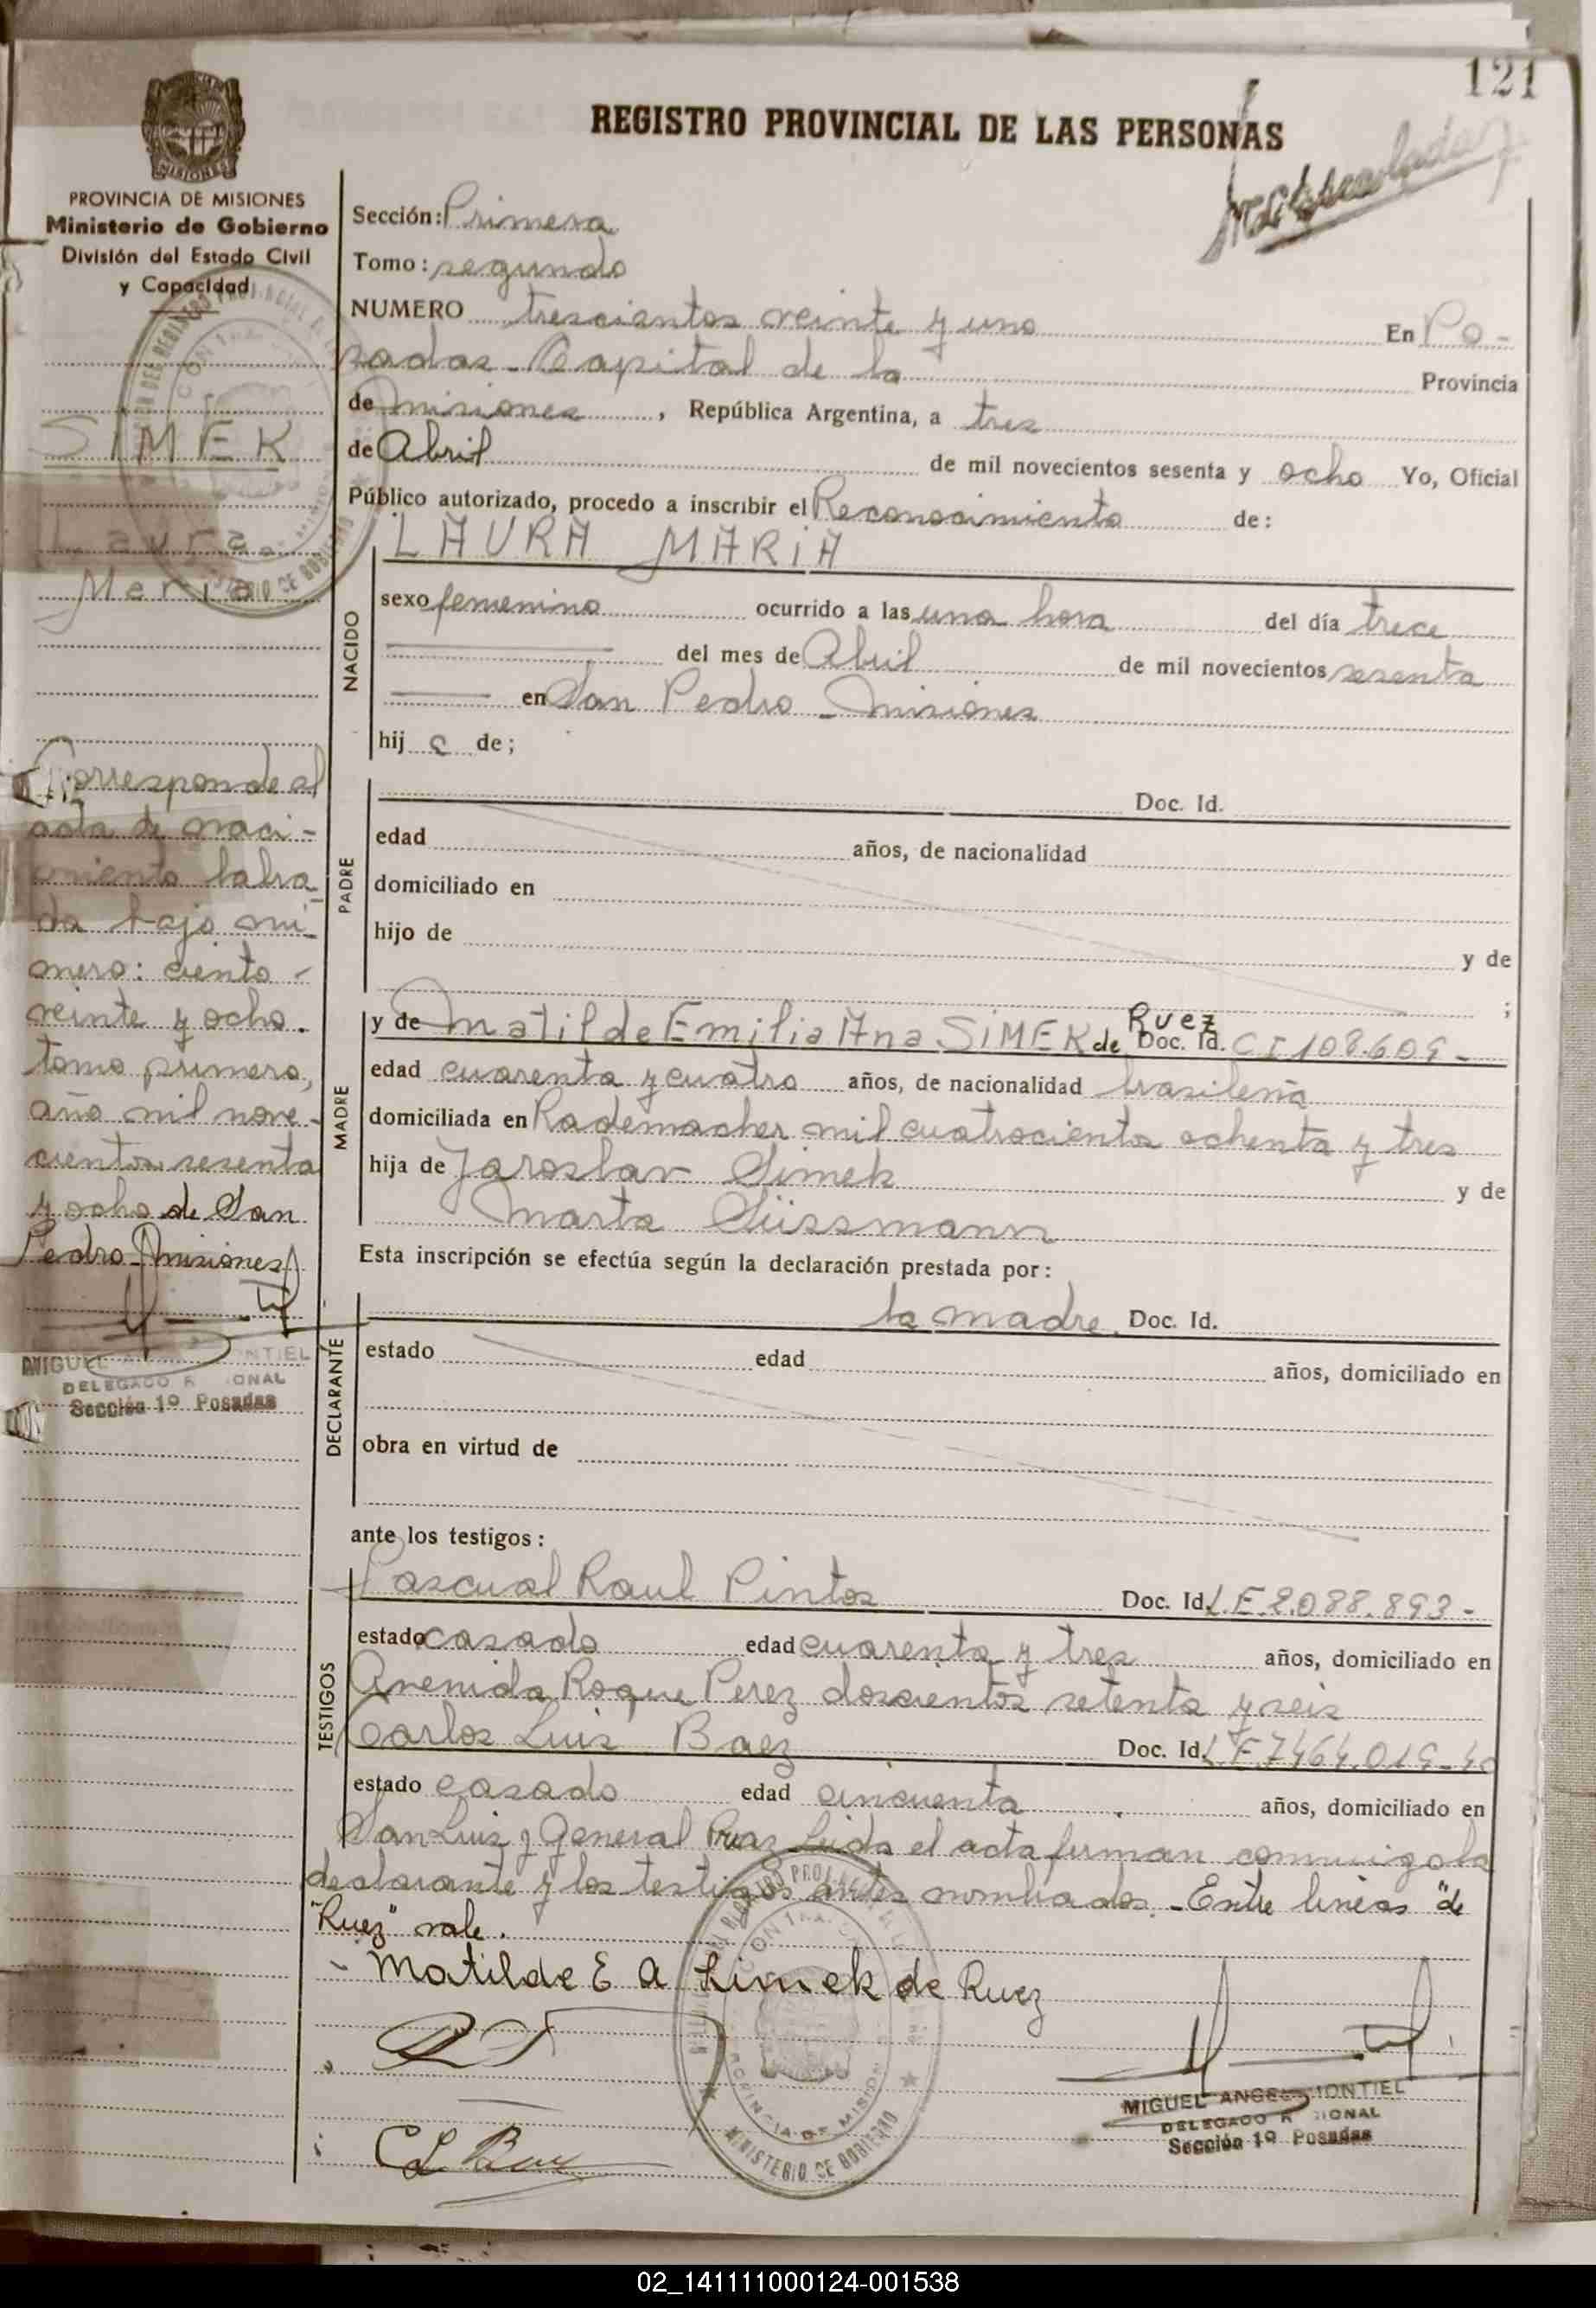 121
REGISTRO PROVINCIAL DE LAS PERSONAS
Matriculada
PROVINCIA DE MISIONES
Ministerio de Gobierno
División del Estado Civil
y Capacidad
SIMEK
Laura
Maria
Corresponde al
acta de naci-
miento labra
da bajo nú-
mero: ciento -
veinte y ocho.
tomo primero,
año mil nove-
cientos sesenta
y ocho de San
Pedro (Misiones)
MIGUEL A NTIEL
DELEGADO R IONAL
Sección 1º Posadas
Sección: Primera
Tomo: segundo
NUMERO trescientos veinte y uno En Po-
sadas - Capital de la Provincia
de Misiones, República Argentina, a tres
de Abril de mil novecientos sesenta y ocho Yo, Oficial
Público autorizado, procedo a inscribir el Reconocimiento de:
LAURA MARIA
NACIDO
sexo femenino ocurrido a las una hora del día trece
del mes de Abril de mil novecientos sesenta
en San Pedro - Misiones
hij a de;
PADRE
Doc. Id.
edad años, de nacionalidad
domiciliado en
hijo de y de
;
MADRE
Ruez
y de Matilde Emilia Ana SIMEK de Doc. Id. C I 108.609 -
edad cuarenta y cuatro años, de nacionalidad brasileña
domiciliada en Rademacher mil cuatrocientos ochenta y tres
hija de Jaroslav Simek y de
Marta Süssmann
Esta inscripción se efectúa según la declaración prestada por:
DECLARANTE
la madre. Doc. Id.
estado edad años, domiciliado en
obra en virtud de
ante los testigos:
TESTIGOS
Pascual Raul Pintos Doc. Id. L.E. 2.088.893 -
estado casado edad cuarenta y tres años, domiciliado en
Avenida Roque Perez doscientos setenta y seis
Carlos Luis Baez Doc. Id. L.E. 7464.019 -
estado casado edad cincuenta años, domiciliado en
San Luis y General Paz Leida el acta firman conmigo la
declarante y los testigos antes nombrados. - Entre lineas "de
Ruez" vale.
Matilde E A Simek de Ruez
C L Baez
MIGUEL ANGEL MONTIEL
DELEGADO R IONAL
Sección 1º Posadas
PROVINCIA DE MISIONES
MINISTERIO DE GOBIERNO
02_141111000124-001538